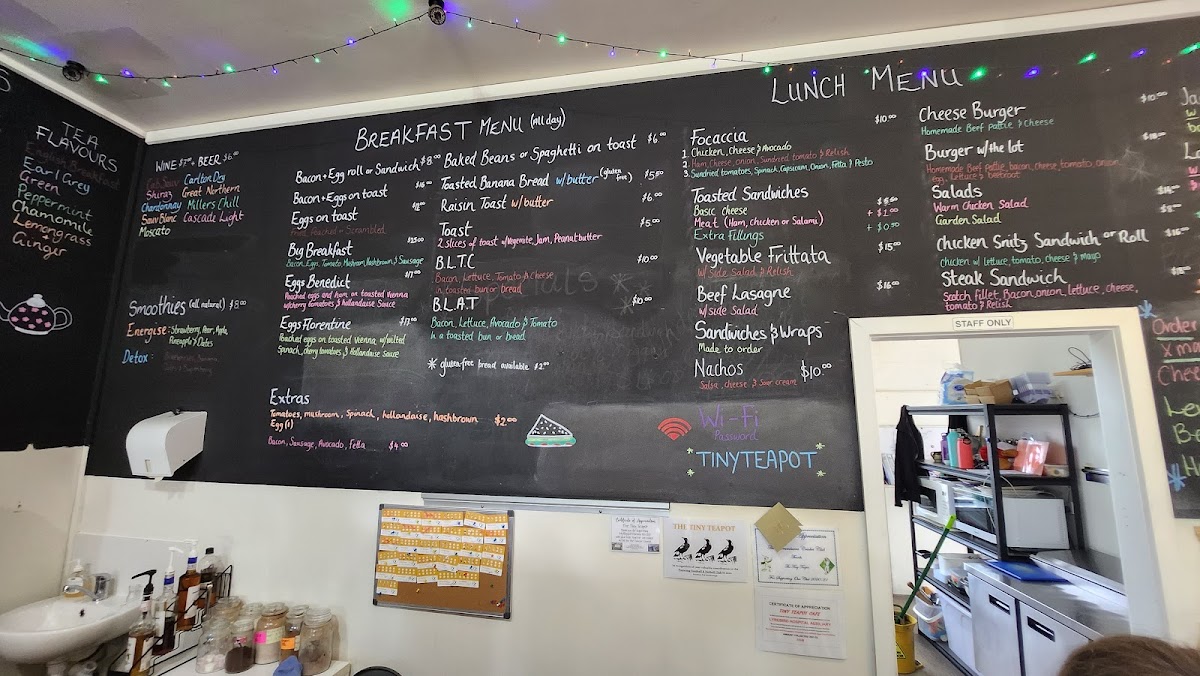 TEA
FLAVOURS
English Breakfast
Earl Grey
Green
Peppermint
Chamomile
Lemongrass
Ginger
WINE $7.00 + BEER $6.00
Cab Sauv Carlton Dry
Shiraz Great Northern
Chardonnay Millers Chill
Sauv Blanc Cascade Light
Moscato
Smoothies (all natural) $8.00
Energise: Strawberry, Pear, Apple,
Pineapple & Dates
Detox:
BREAKFAST MENU (all day)
Bacon + Egg roll or Sandwich $8.00
Bacon + Eggs on toast
Eggs on toast
Fried, Poached or Scrambled
Big Breakfast $25.00
Bacon, Eggs, Tomato, Mushroom, Hashbrown & Sausage
Eggs Benedict
Poached eggs and ham on toasted vienna
w/cherry tomatoes & hollandaise Sauce
Eggs Florentine $17.00
Poached eggs on toasted vienna, w/wilted
Spinach, cherry tomatoes, & Hollandaise Sauce
Extras
Tomatoes, mushroom, Spinach, hollandaise, hashbrown $2.00
Egg (1)
Bacon, Sausage, Avocado, Fetta $4.00
Baked Beans or Spaghetti on toast $6.00
Toasted Banana Bread w/butter (gluten free) $5.50
Raisin Toast w/butter $6.00
Toast $5.00
2 Slices of toast w/Vegemite, Jam, Peanut butter
B.L.T.C $10.00
Bacon, Lettuce, Tomato & Cheese
in toasted bun or bread
B.L.A.T $10.00
Bacon, Lettuce, Avocado & Tomato
In a toasted bun or bread
* gluten-free bread available $2.00
LUNCH MENU
Focaccia $10.00
1. Chicken, Cheese & Avocado
2. Ham, Cheese, onion, Sundried tomato & Relish
3. Sundried tomatoes, Spinach, Capsicum, Onion, Fetta & Pesto
Toasted Sandwiches
Basic cheese
Meat (Ham, chicken or Salami) + $1.00
Extra Fillings + $0.50
Vegetable Frittata $15.00
w/ Side Salad & Relish
Beef Lasagne $16.00
w/side Salad
Sandwiches & Wraps
Made to order
Nachos $10.00
Salsa, cheese & Sour cream
Wi-Fi
Password
TINYTEAPOT
Cheese Burger $10.00
Homemade Beef Pattie & Cheese
Burger w/the lot
Homemade Beef pattie, bacon, cheese, tomato, onion,
egg, Lettuce & beetroot
Salads
Warm Chicken Salad
Garden Salad
Chicken Snitz Sandwich or Roll
Chicken w/ lettuce, tomato, cheese & mayo
Steak Sandwich
Scotch Fillet, Bacon, onion, lettuce, cheese,
tomato & Relish
STAFF ONLY
Order
Xma
Chee
Certificate of Appreciation
THE TINY TEAPOT
Appreciation
CERTIFICATE OF APPRECIATION
TINY TEAPOT CAFE